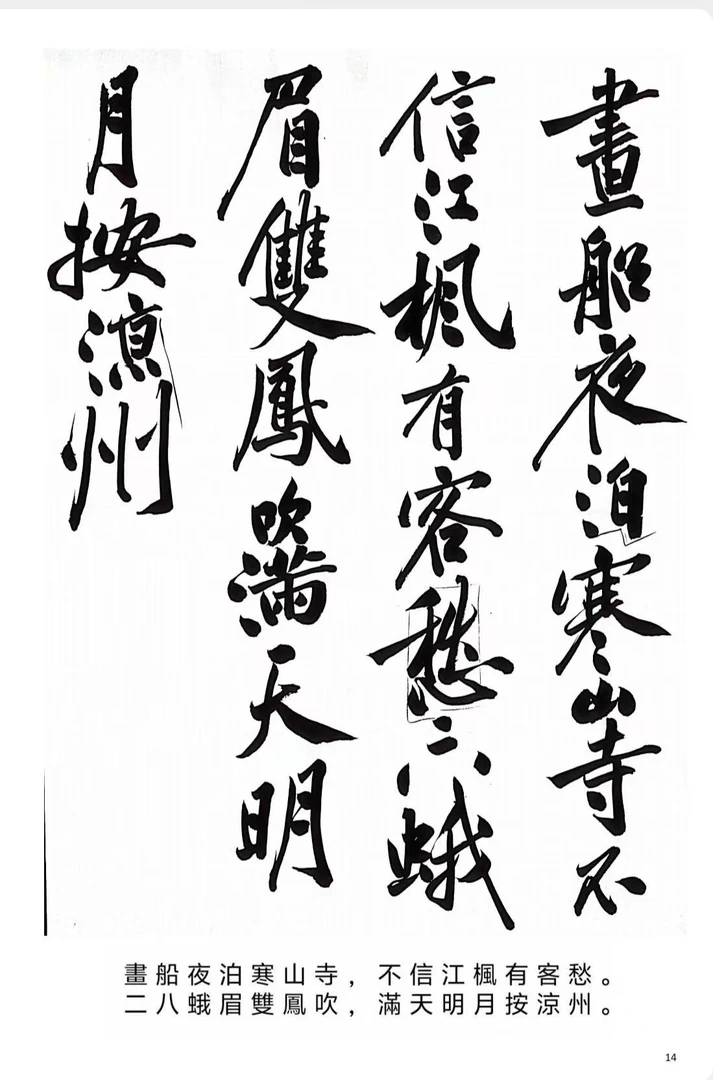 畫船夜泊寒山寺不
信江楓有客愁二八蛾
眉雙鳳吹滿天明
月按涼州
畫船夜泊寒山寺，不信江楓有客愁。
二八蛾眉雙鳳吹，滿天明月按涼州。
14